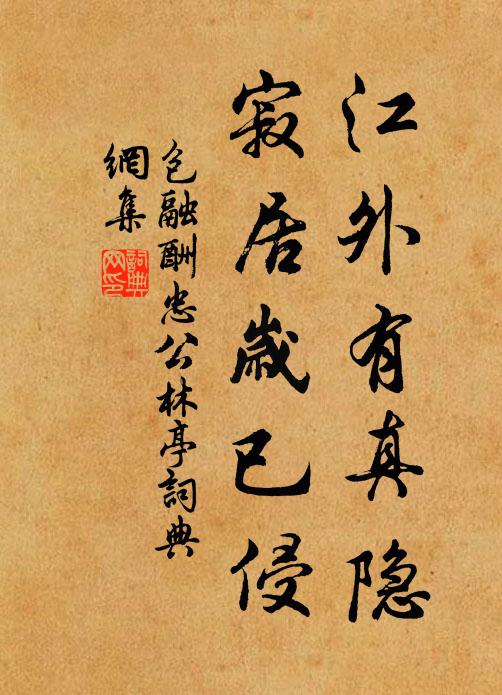 江外有真隐
寂居歲已侵
包融酬忠公林亭詞典
網集
詞典
网印